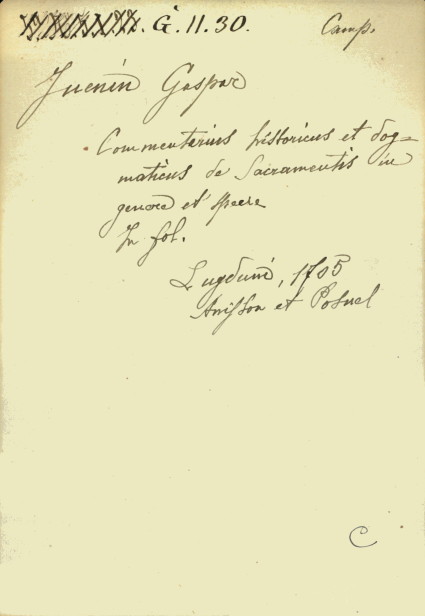 G. 11. 30.
Camp.
Juenin Gaspar
Commentarius historicus et dog=
maticus de Sacramentis in
genere et specie
In fol.
Lugduni, 1705
Anisson et Posuel
C